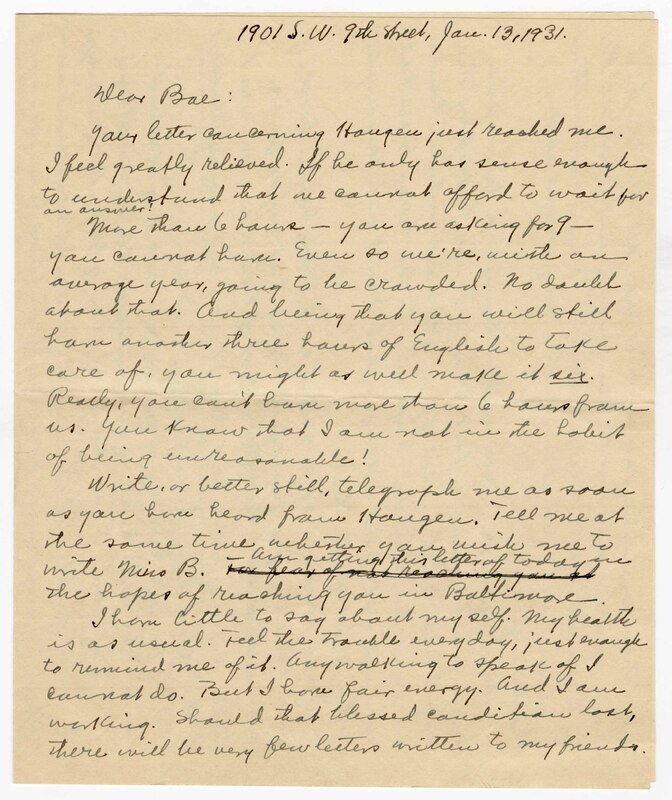 1901 S.W. 9th street, Jan. 13, 1931.
Dear Bae:
Your letter concerning Haugen just reached me.
I feel greatly relieved. If he only has sense enough
to understand that we cannot afford to wait for
an answer!
More than 6 hours — you are asking for 9 —
you cannot have. Even so we're, with an
average year, going to be crowded. No doubt
about that. And being that you will still
have another three hours of English to take
care of, you might as well make it six.
Really, you can't have more than 6 hours from
us. You know that I am not in the habit
of being unreasonable!
Write, or better still, telegraph me as soon
as you have heard from Haugen. Tell me at
the same time whether you wish me to
write Miss B. Am getting this letter off today in
For fear of not reaching you at
the hopes of reaching you in Baltimore.
I have little to say about my self. My health
is as usual. Feel the trouble every day, just enough
to remind me of it. Any walking to speak of I
cannot do. But I have fair energy. And I am
working. Should that blessed condition last,
there will be very few letters written to my friends.